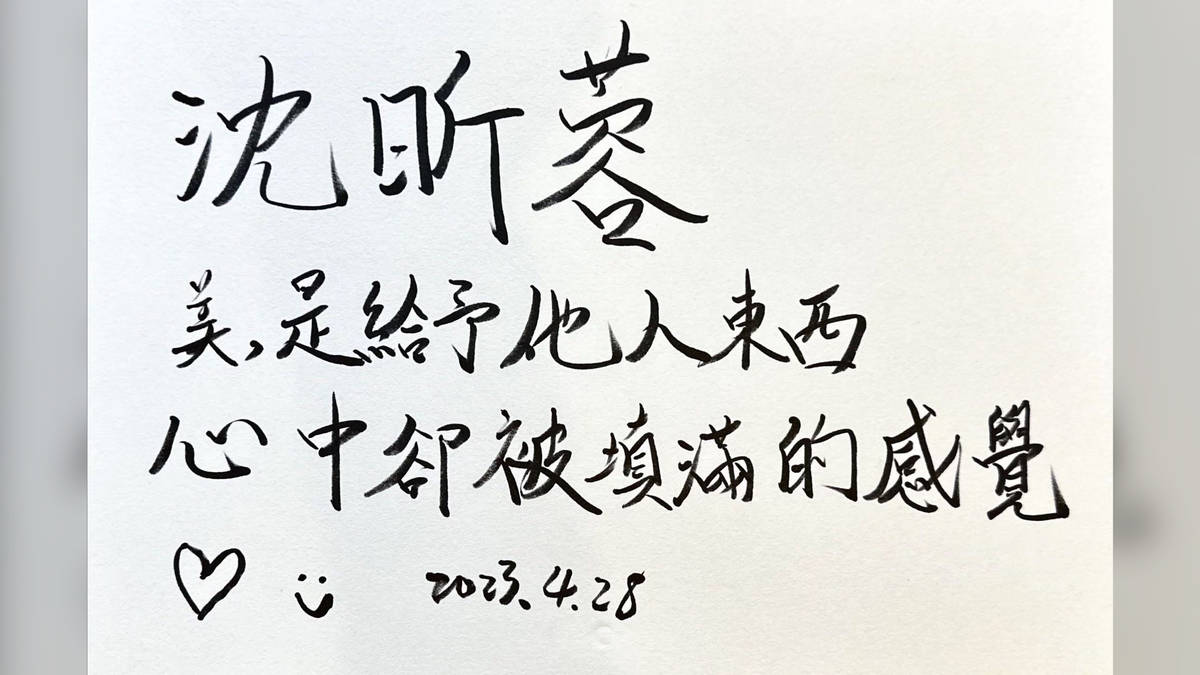 沈昕蓉
美,是給予他人東西
心中卻被填滿的感覺
2023.4.28